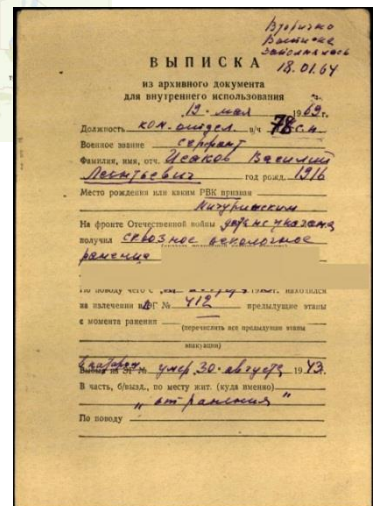 Вторично
Выписка
заполнялась
18.01.64
ВЫПИСКА
из архивного документа
для внутреннего использования
19 - мая 1969 г.
Должность ком. отдел. в/ч 78 с.п.
Военное звание сержант
Фамилия, имя, отч. Исаков Василий
Леонтьевич год рожд. 1916
Место рождения или каким РВК призван
Мичуринским
На фронте Отечественной войны дата не указана
получил сквозное осколочное
ранение
По поводу чего с находился
на излечении в ЭГ № 412 предыдущие этапы
с момента ранения
(перечислить все предыдущие этапы
эвакуации)
умер 30 - августа 1943.
В часть, б/выезд., по месту жит. (куда именно)
"от ранения"
По поводу